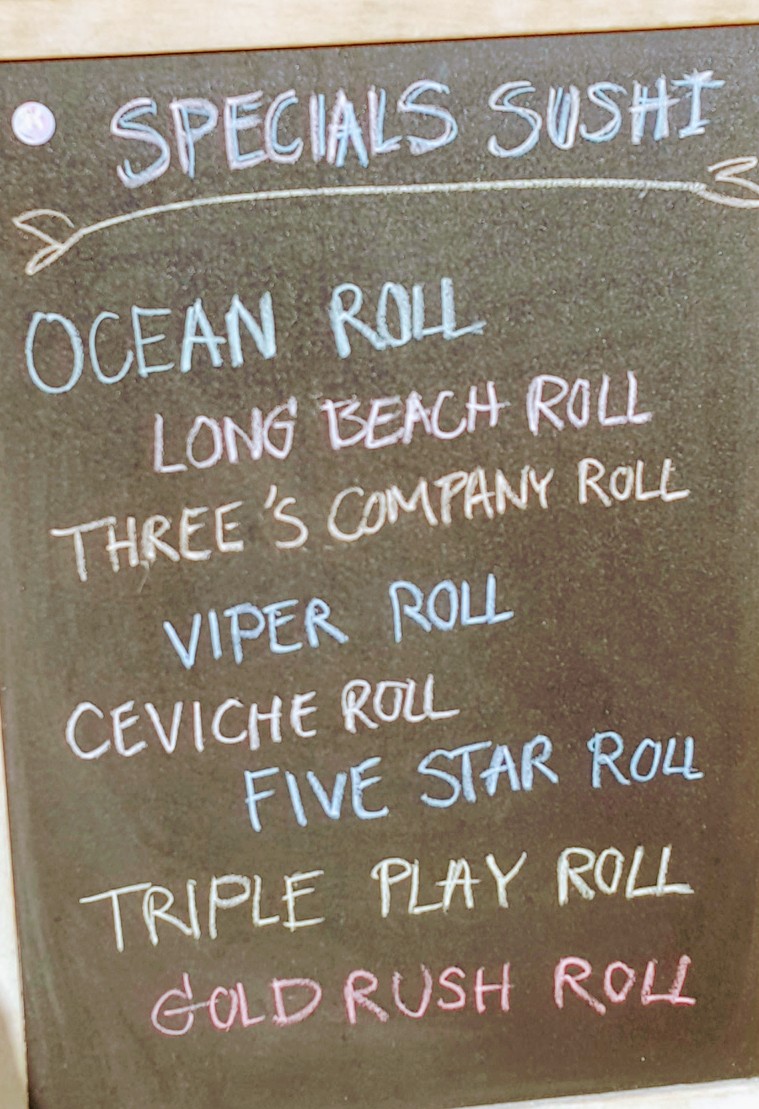 SPECIALS SUSHI
OCEAN ROLL
LONG BEACH ROLL
THREE'S COMPANY ROLL
VIPER ROLL
CEVICHE ROLL
FIVE STAR ROLL
TRIPLE PLAY ROLL
GOLD RUSH ROLL